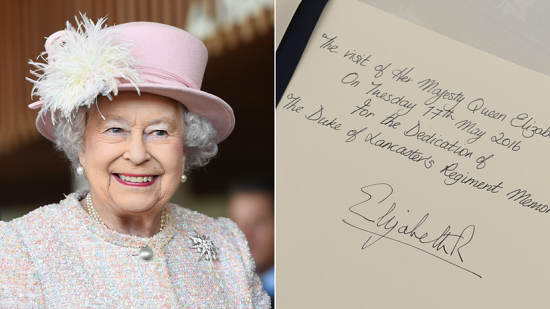 The visit of Her Majesty Queen Elizab
On Tuesday 17th May 2016
For the Dedication of
The Duke of Lancaster's Regiment Memor
Elizabeth R